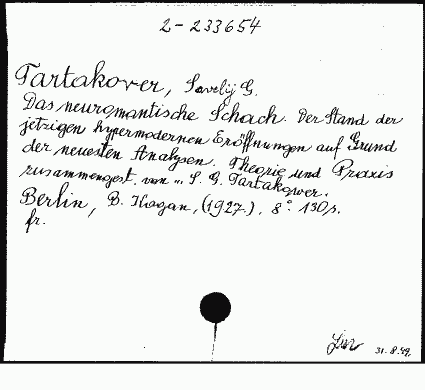 2-233654
Tartakover, Savelij G.
Das neuromantische Schach. Der Stand der
jetzigen hypermodernen Eröffnungen auf Grund
der neuesten Analysen. Theorie und Praxis
zusammengest. von ... S. G. Tartakower.
Berlin, B. Kagan, (1927). 8° 130 s.
fr.
31.8.49.